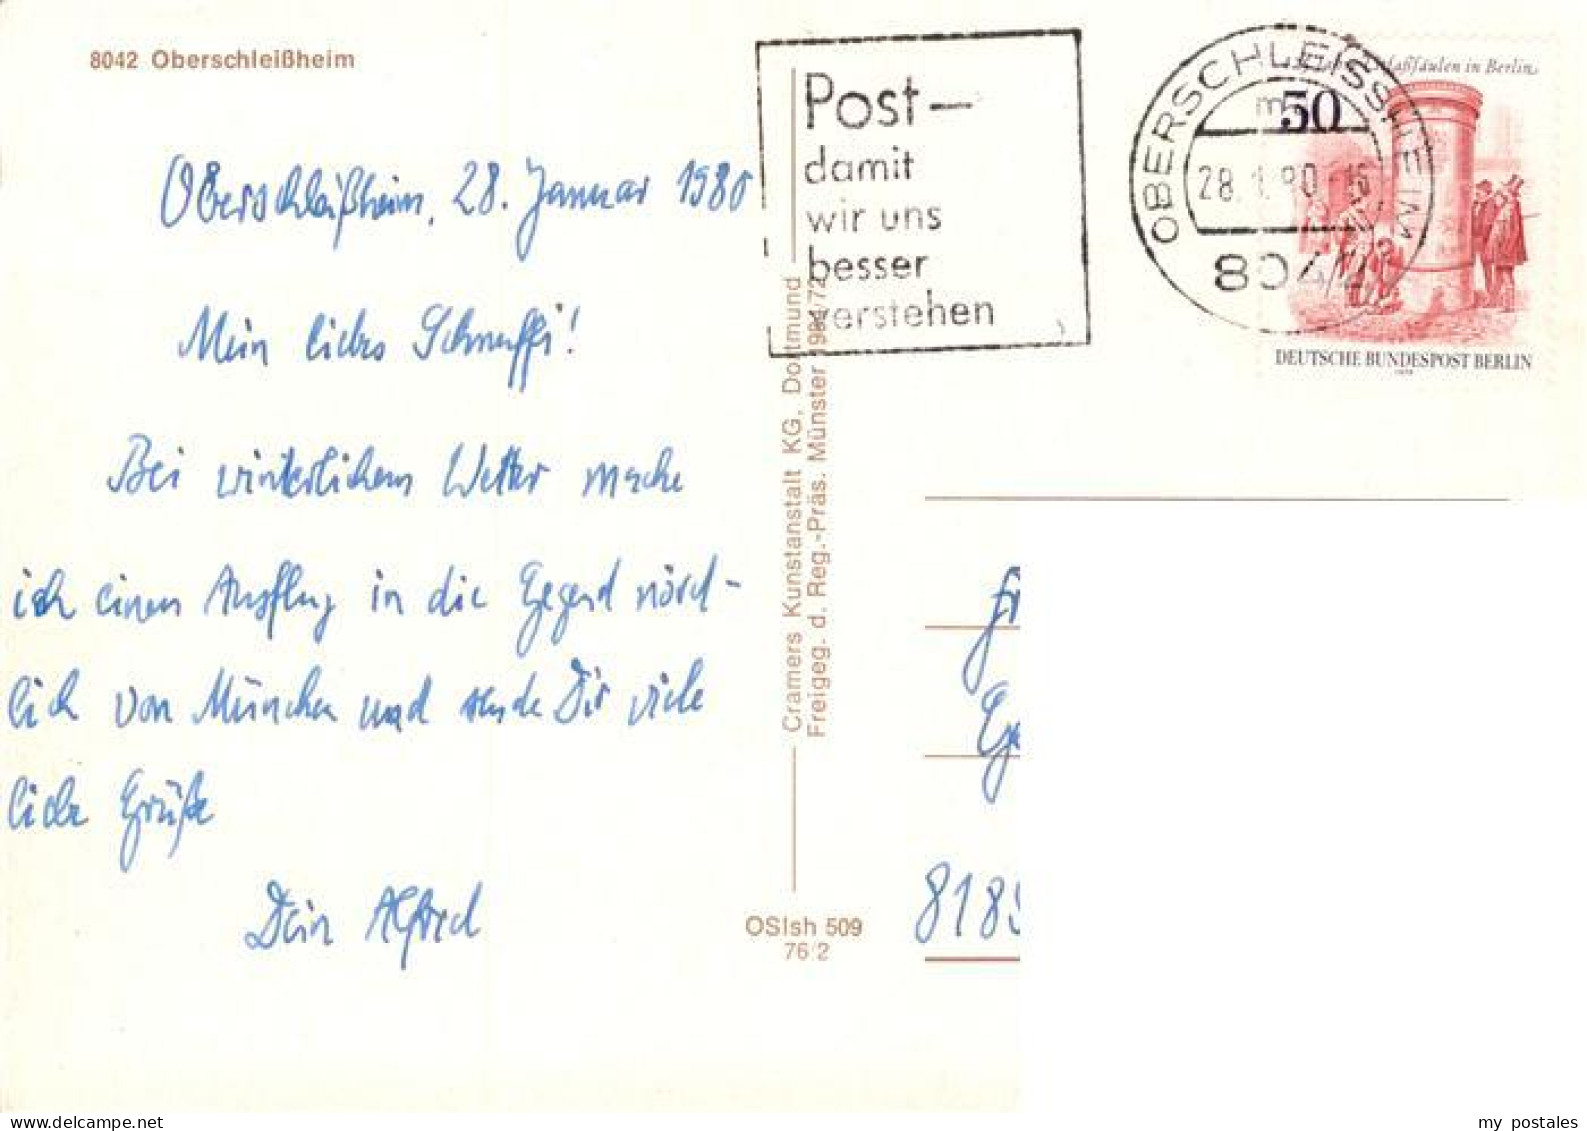 8042 Oberschleißheim
Oberschleißheim, 28. Januar 1980
Mein liebes Schnuffi!
Bei winterlichem Wetter mache
ich einen Ausflug in die Gegend nörd-
lich von München und sende Dir viele
liebe Grüße
Dein Alfred
Post–
damit
wir uns
besser
verstehen
OBERSCHLEISSHEIM
28.1.80-16
8042
50
in Berlin
DEUTSCHE BUNDESPOST BERLIN
Cramers Kunstanstalt KG, Dortmund
Freigeg. d. Reg.-Präs. Münster
OSlsh 509
76/2
Fr
Ge
818
my postales
delcampe.net